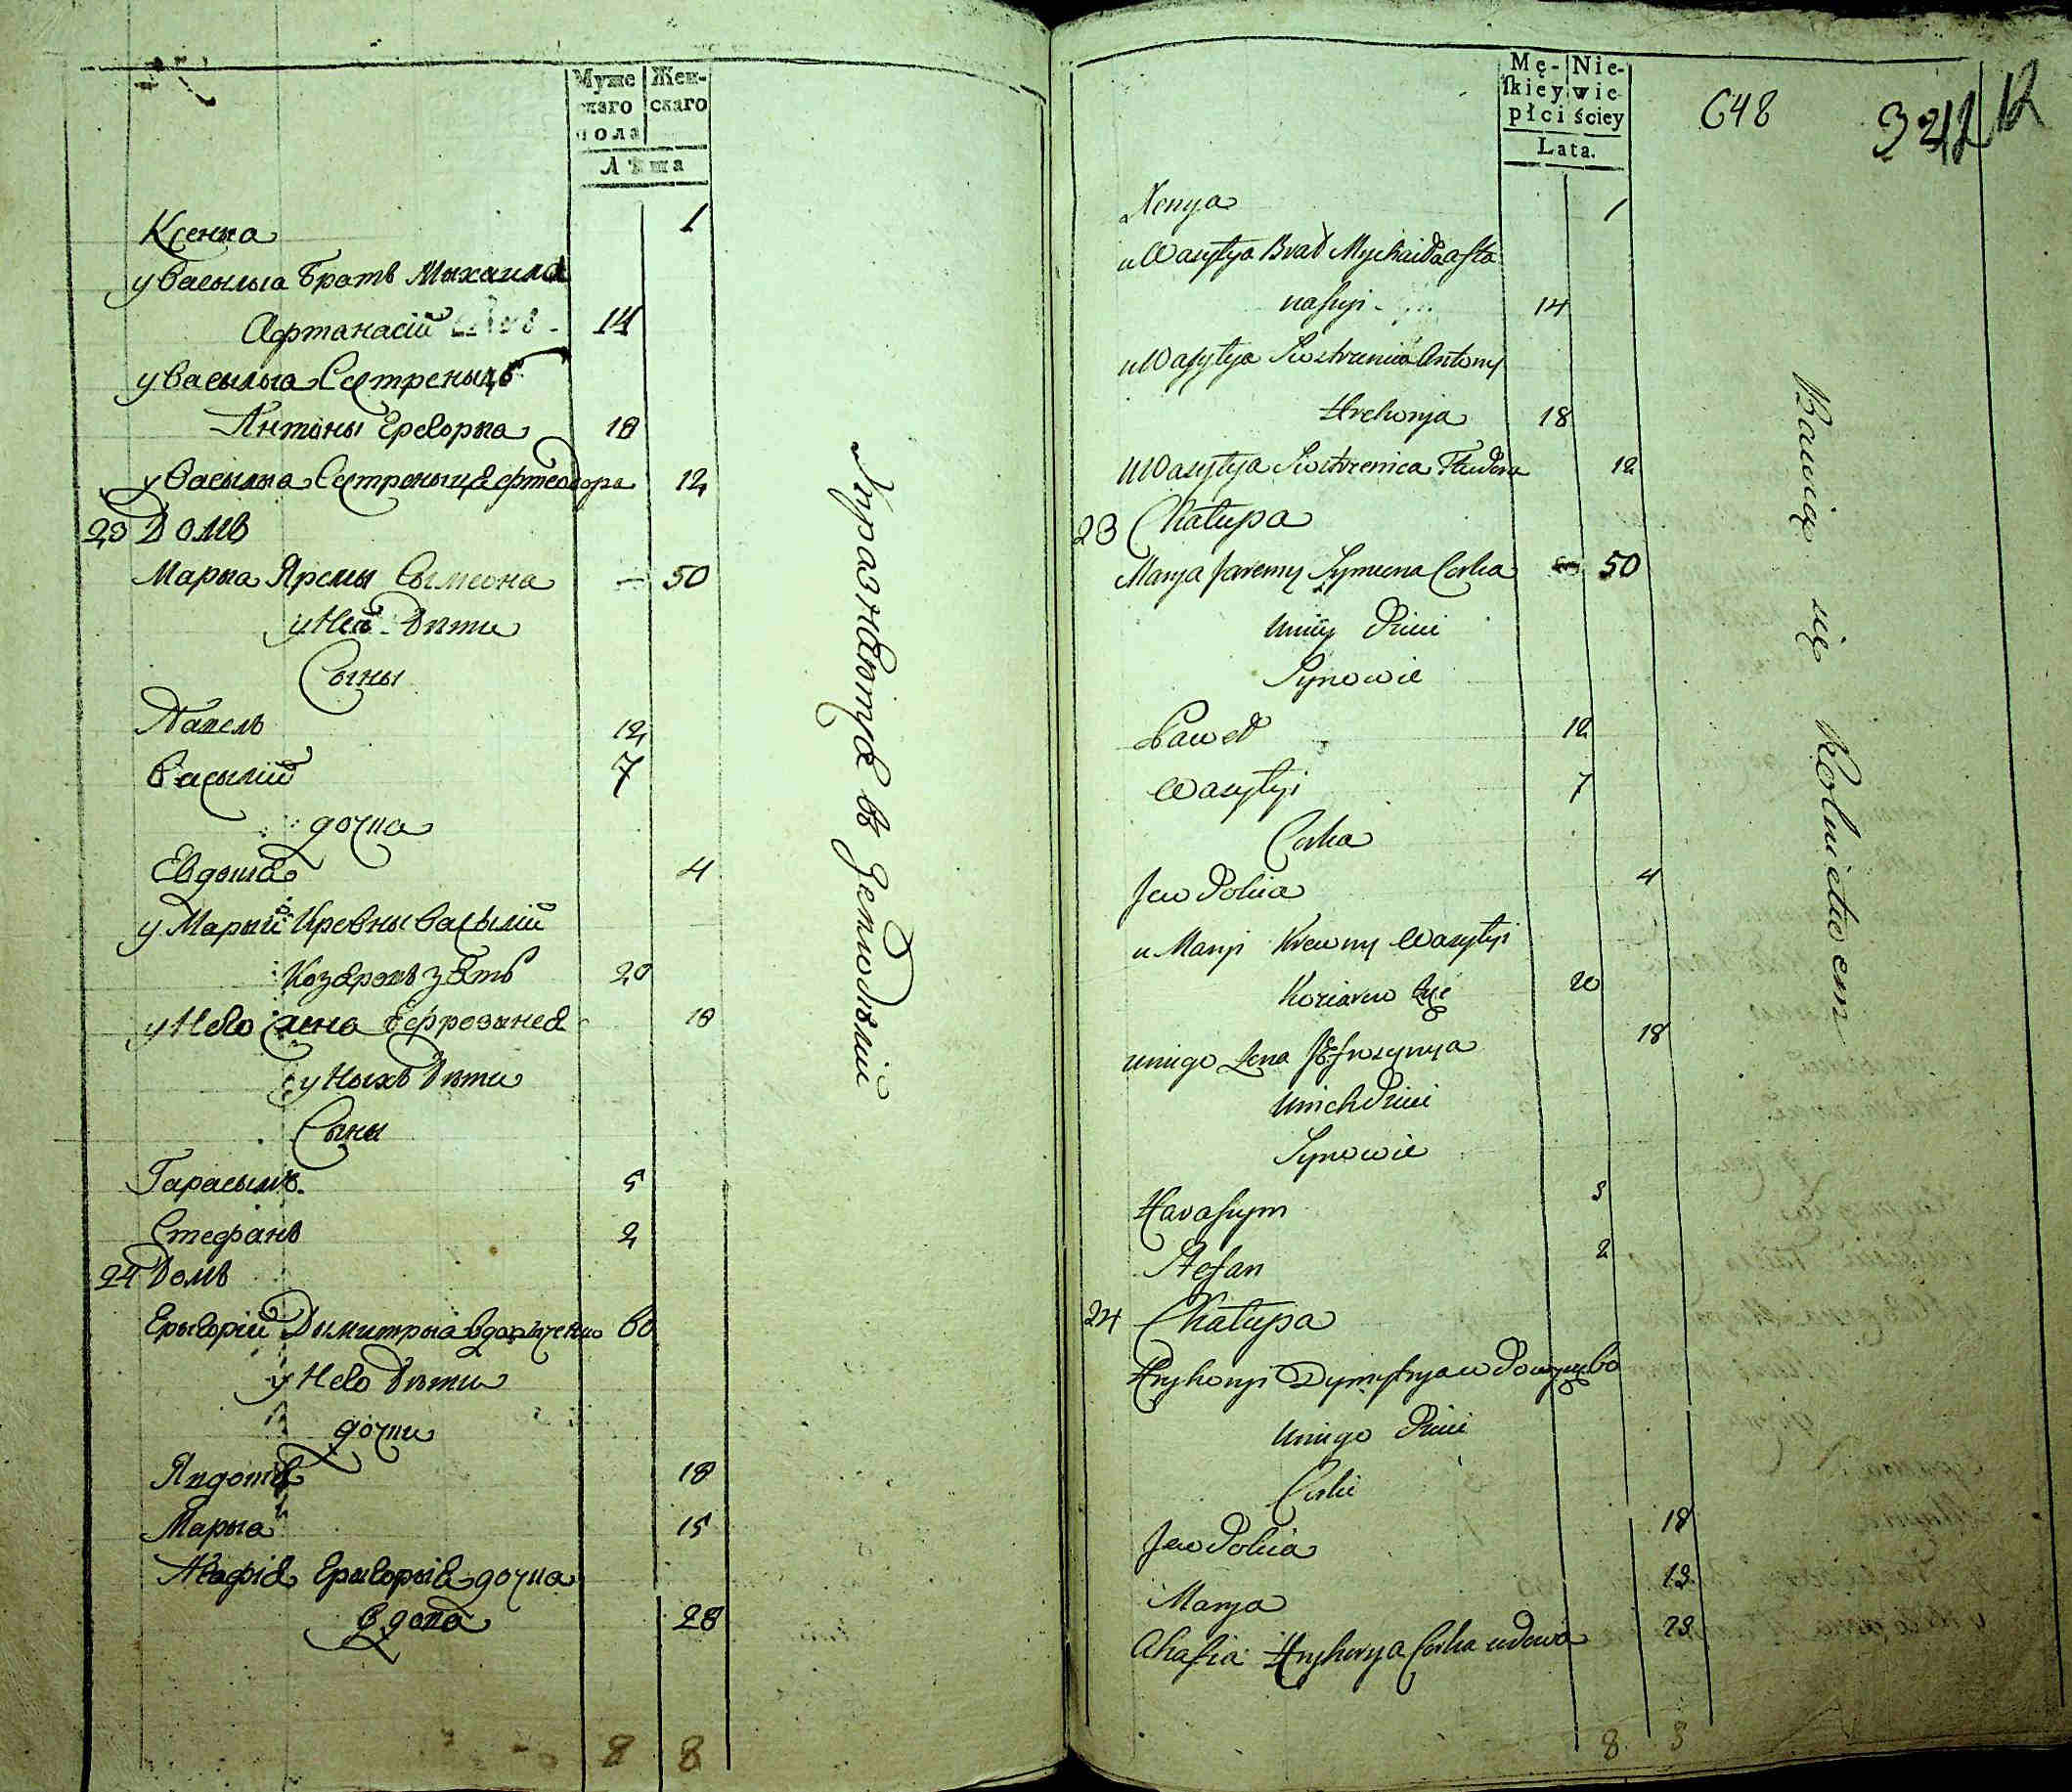 Муже Жен-
скаго скаго
пола
Лѣта
Ксенıа 1
у Васылıа Братъ Мыхаила
Афтанасій 14
у Васылıа Сестреныцъ
Антоны Грегорıа 18
у Васылıа Сестреныца Фтеодора 12
23 Домъ
Марıа Яремы Сымеона — 50
у Неи Дѣти
Сыны
Павелъ 12
Васылій 7
дочка
Евдокıа 4
у Марыи Кревны Васылій
Козаровъ зять 20
у Него жена Ефрозинея 18
у Ныхъ Дѣти
Сыны
Гарасымъ 5
Стефанъ 2
24 Домъ
Грыгорій Димитрıа 60
у Него Дѣти
дочки
Явдокıа 18
Марıа 15
Агафıя Григорıя дочка
вдова 28
8 8
Упражнаются въ земледѣліи
Mę- Nie-
skiey wie
płci ściey
Lata.
648
Xenya 1
u Wasylya Brat Mychaiła Afta
nasyi 14
u Wasylya Siostrzeniec Antony
Hrehorya 18
u Wasylya Siostrzenica Fteodora 12
23 Chałupa
Marya Jaremy Symeona Corka 50
u niey Dzieci
Synowie
Paweł 12
Wasylyi 7
Corka
Jewdokia 4
u Maryi Krewny Wasylyi
Koziarow Zięć 20
u niego Żona Jefrozynya 18
u nich Dzieci
Synowie
Harasym 5
Stefan 2
24 Chałupa
Hryhoryi Dymytrya wdowiec 60
u niego Dzieci
Corki
Jewdokia 18
Marya 15
Ahafia Hryhorya Corka wdowa 28
8 8
Bawią się Rolnictwem